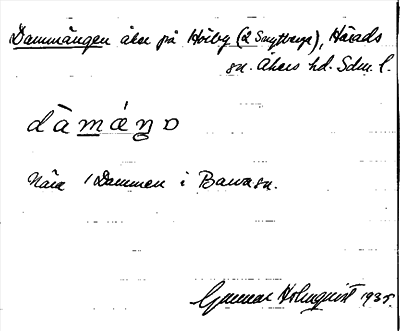 Dammängen åker på Hörby (2 Snytberga), Härads
sn. Åkers hd. Sdm. l.
dàmáŋo
Nära / Dammen i Barva sn.
Gunnar Holmqvist 1935.